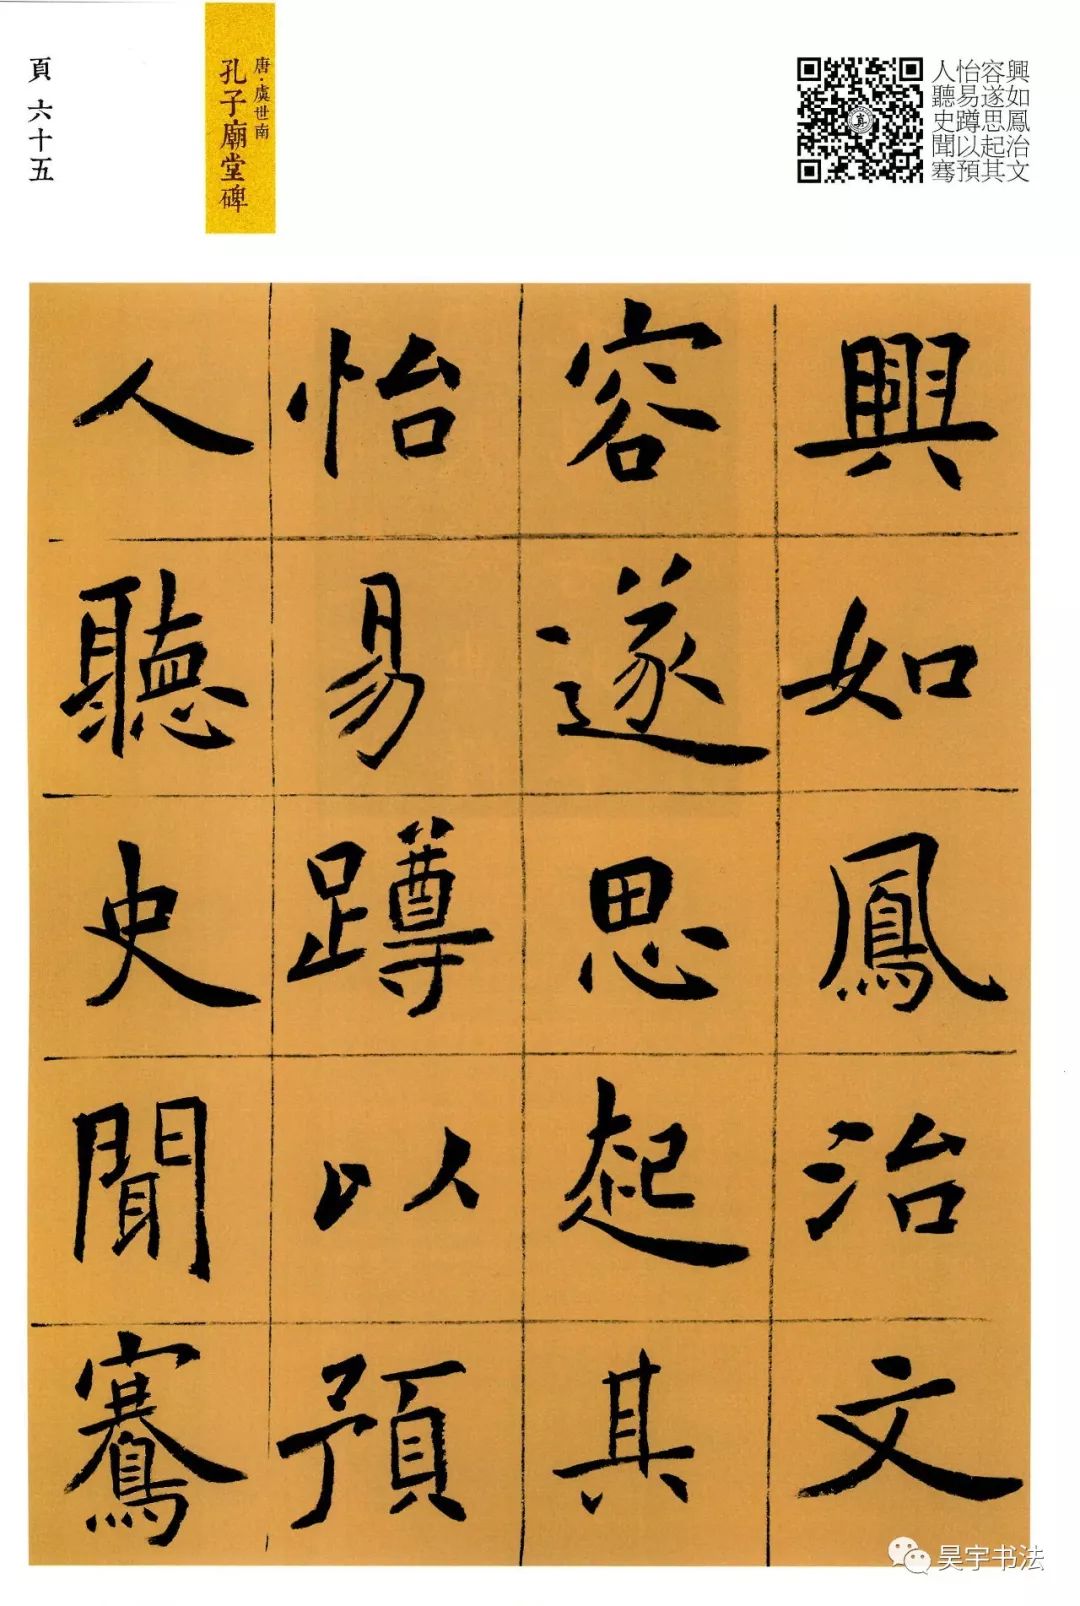 興如鳳治文
容遂思起其
怡易蹲以預
人聽史聞骞
唐·虞世南
孔子廟堂碑
頁六十五
興如鳳治文
容遂思起其
怡易蹲以預
人聽史聞鶱
昊宇书法